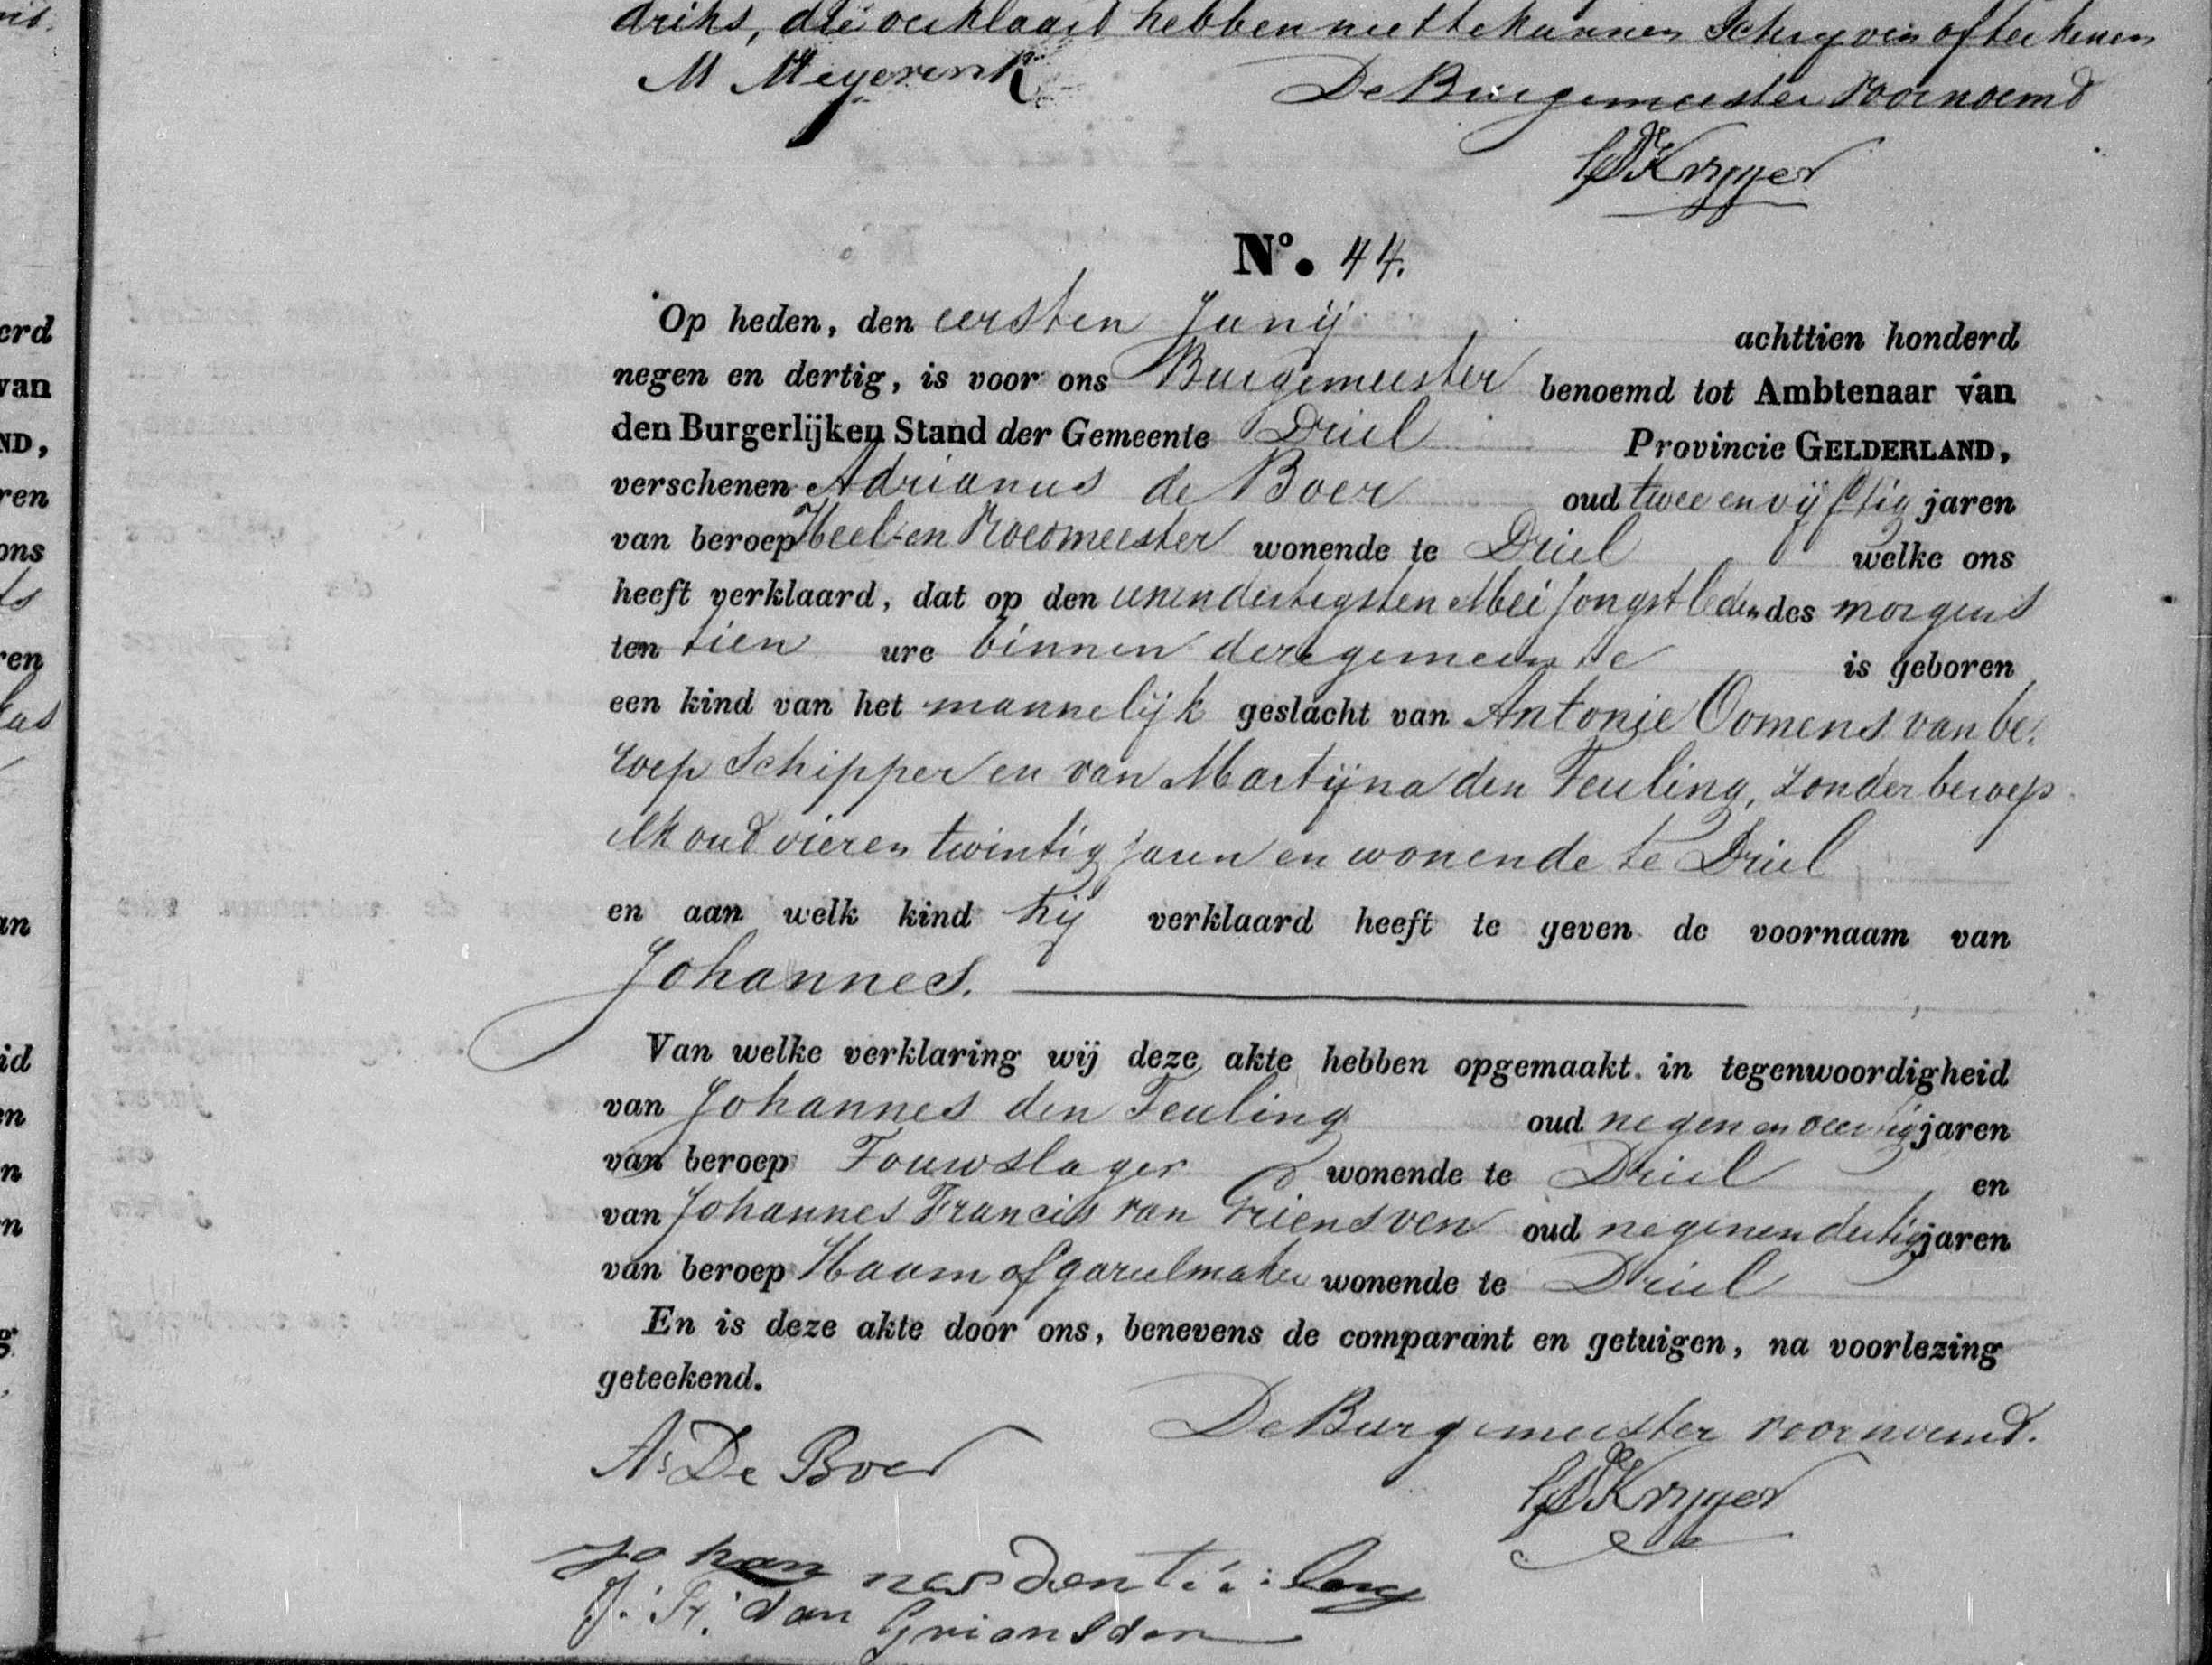 driks, die verklaard hebben niet te kunnen Schryven of teekenen
M Meyerink
De Burgemeester voornoemd
Kryger
No. 44.
Op heden, den eersten Junij achttien honderd
negen en dertig, is voor ons Burgemeester benoemd tot Ambtenaar van
den Burgerlijken Stand der Gemeente Driel Provincie GELDERLAND,
verschenen Adrianus de Boer oud twee en vijftig jaren
van beroep Heel-en Vroedmeester wonende te Driel welke ons
heeft verklaard, dat op den eenendertigsten Mei jongstleden des morgens
ten tien ure binnen deze gemeente is geboren
een kind van het mannelijk geslacht van Antonie Oomens van be-
roep Schipper en van Martijna den Teuling, zonder beroep
elk oud vier en twintig jaren en wonende te Driel
en aan welk kind hij verklaard heeft te geven de voornaam van
Johannes.
Van welke verklaring wij deze akte hebben opgemaakt in tegenwoordigheid
van Johannes den Teuling oud negen en veertig jaren
van beroep Touwslager wonende te Driel en
van Johannes Francis van Griensven oud negenendertig jaren
van beroep Haam of gareelmaker wonende te Driel
En is deze akte door ons, benevens de comparant en getuigen, na voorlezing
geteekend.
As De Boer
De Burgemeester voornoemd.
Kryger
Johannes den
J. Fr. van Griensven